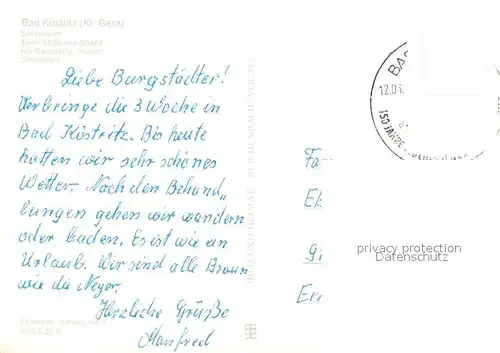 Bad Köstritz (Kr. Gera)
Sanatorium
Ernst-Thälmann-Straße
Liebe Burgstädter!
Verbringe die 3 Woche in
Bad Köstritz. Bis heute
hatten wir sehr schönes
Wetter. Nach den Behand„
lungen gehen wir wandern
oder baden. Es ist wie ein
Urlaub. Wir sind alle Braun
wie die Neger.
Herzliche Grüße
Manfred
BILD UND HEIMAT REICHENBACH
BAD
12.0
150 JAHRE
Fa
El
G
Er
privacy protection
Datenschutz